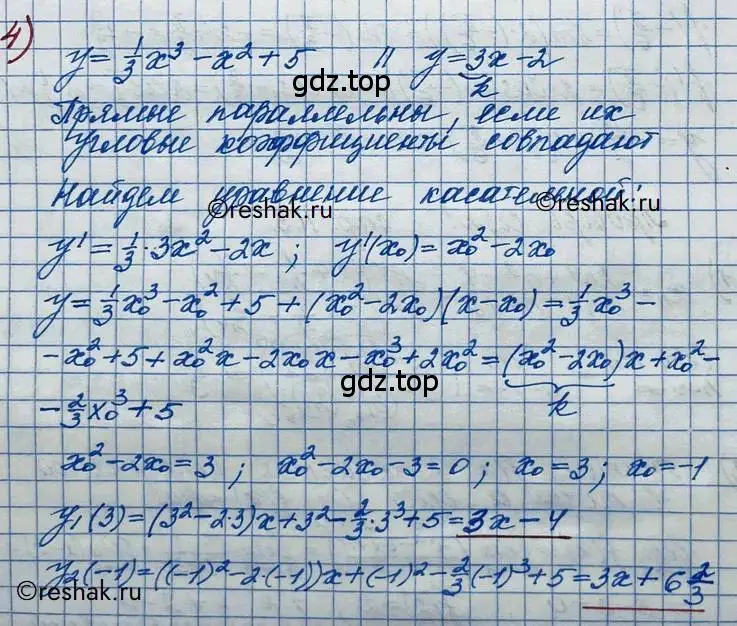 4)
y = 1/3 x³ - x² + 5 || y = 3x - 2
gdz.top
k
Прямые параллельны, если их
угловые коэффициенты совпадают
Найдем уравнение касательной:
©reshak.ru ©reshak.ru
y' = 1/3 · 3x² - 2x ; y'(x₀) = x₀² - 2x₀
y = 1/3 x₀³ - x₀² + 5 + (x₀² - 2x₀)(x - x₀) = 1/3 x₀³ -
- x₀² + 5 + x₀²x - 2x₀x - x₀³ + 2x₀² = (x₀² - 2x₀)x + x₀² -
gdz.top
k
- 2/3 x₀³ + 5
x₀² - 2x₀ = 3 ; x₀² - 2x₀ - 3 = 0 ; x₀ = 3 ; x₀ = -1
y₁(3) = (3² - 2·3)x + 3² - 2/3 · 3³ + 5 = 3x - 4
y₂(-1) = ((-1)² - 2·(-1))x + (-1)² - 2/3 (-1)³ + 5 = 3x + 6 2/3
©reshak.ru ©reshak.ru